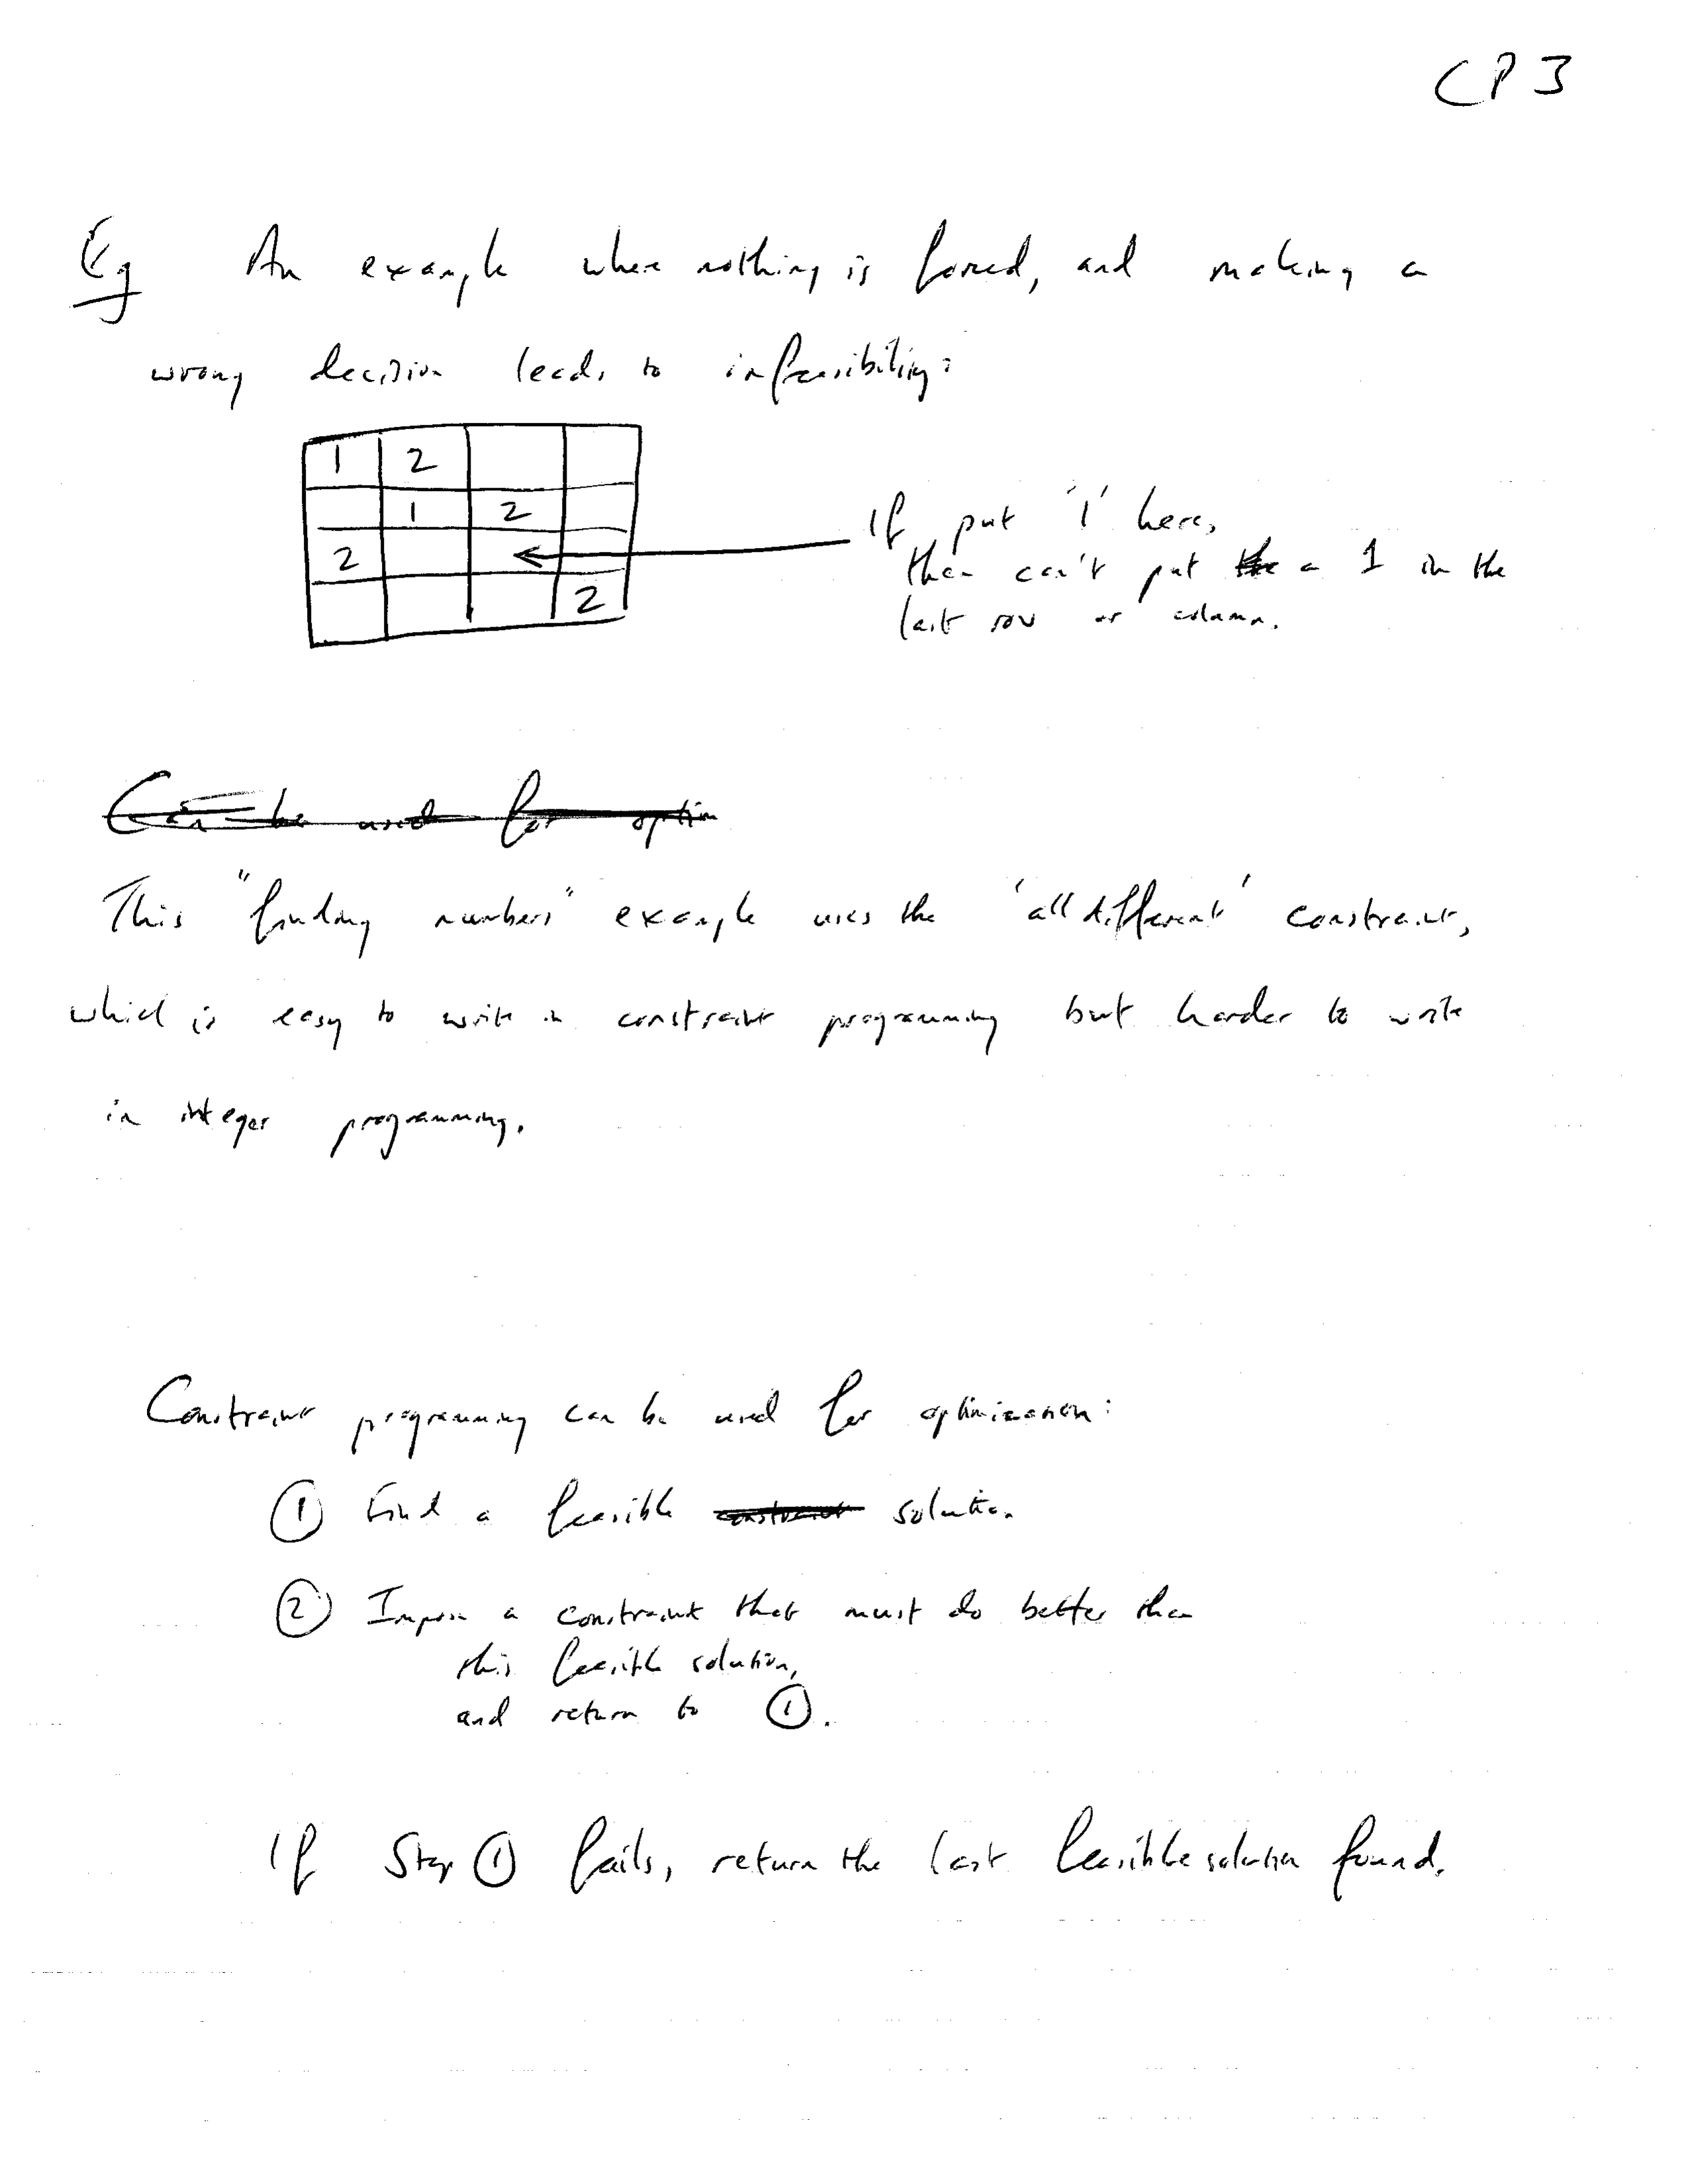 CP 3
Eg An example where nothing is forced, and making a
wrong decision leads to infeasibility:
1 2
1 2
2
2
If put '1' here,
then can't put a 1 in the
last row or column.
Can be used for optim
This "finding numbers" example uses the 'all different' constraint,
which is easy to write in constraint programming but harder to write
in integer programming.
Constraint programming can be used for optimization:
① Find a feasible constraint solution.
② Impose a constraint that must do better than
this feasible solution,
and return to ①.
If Step ① fails, return the last feasible solution found.